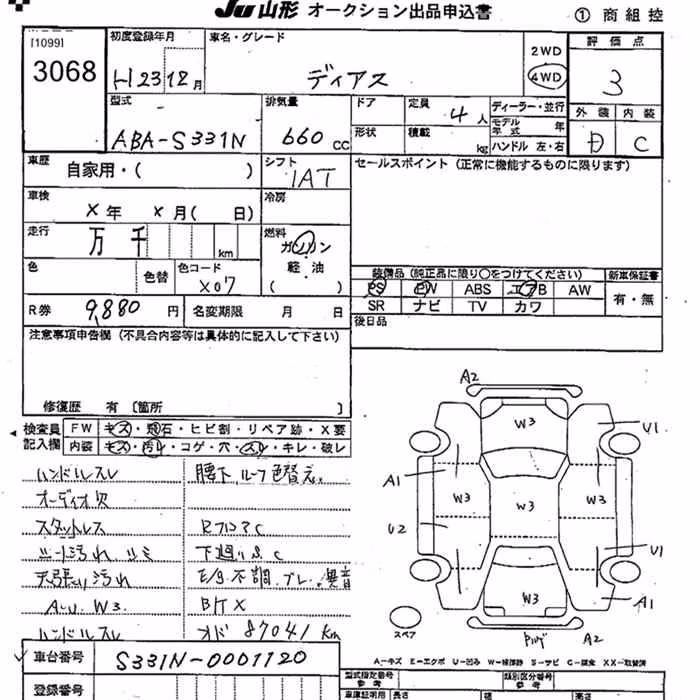 JU山形 オークション出品申込書
① 商 組 控
[1099]
3068
初度登録年月
H23 12月
車名・グレード
ディアス
2WD
4WD
評価点
3
型式
ABA-S331N
排気量
660 CC
ドア
定員
4 人
形状
積載
kg
ディーラー・並行
モデル年式 年
ハンドル 左・右
外装 内装
D C
車歴
自家用・( )
シフト
IAT
セールスポイント (正常に機能するものに限ります)
車検
X 年 X 月( 日)
冷房
走行
万 千 km
燃料
ガソリン
軽・油
( )
色
色替
色コード
X07
装備品 (純正品に限り○をつけてください)
新車保証書
PS PW ABS エアB AW
SR ナビ TV カワ
有・無
R券 9,880 円
名変期限 月 日
後日品
注意事項申告欄 (不具合内容等は具体的に記入して下さい)
修復歴 有 〔箇所 〕
検査員記入欄
FW キズ・飛石・ヒビ割・リペア跡・X要
内装 キズ・汚れ・コゲ・穴・スレ・キレ・破レ
ハンドルスレ
腰下、ルーフ色替え。
オーディオ欠
スタットレス
シート汚れ シミ
下廻りS.C
天張り汚れ
E/g不調、ブレ、異音
A.U.W3
ハンドルスレ
オド 87041 km
A2
W3
U1
A1
W3
W3
W3
U2
U1
W3
A1
スペア
A2
A-キズ E-エクボ U-凹み W-補修跡 S-サビ C-腐食 XX-取替済
車台番号
S331N-0001120
登録番号
型式指定番号
参考
類別区分番号
参考
車庫証明用
長さ
幅
高さ